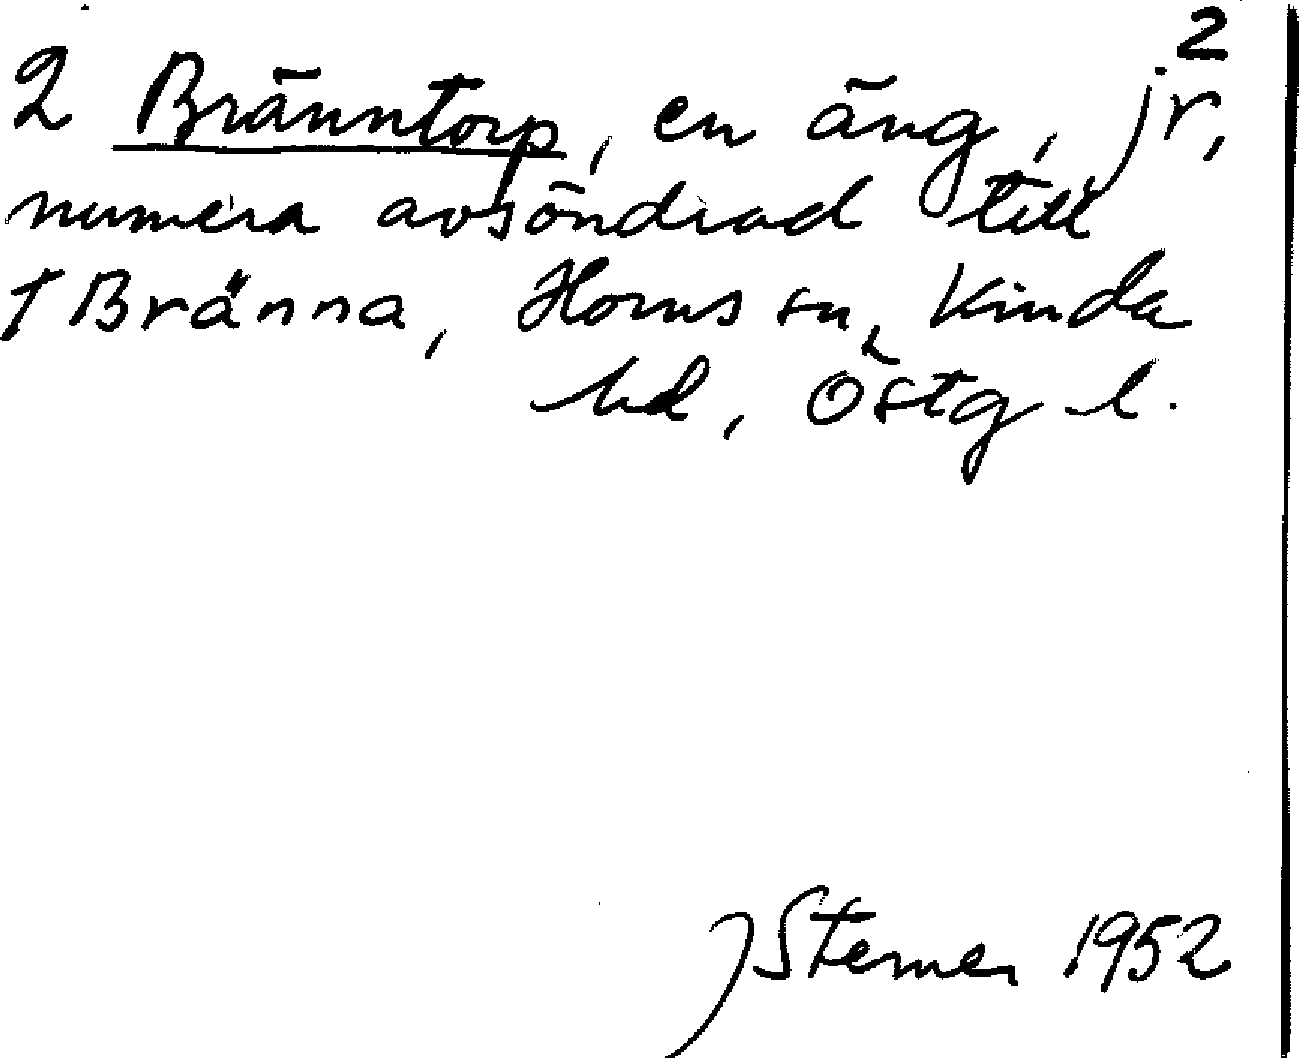 2
2 Bränntorp, en äng, jr,
numera avsöndrad till
† Bränna, Horns sn, Kinda
hd, Östg l.
J Sterner 1952